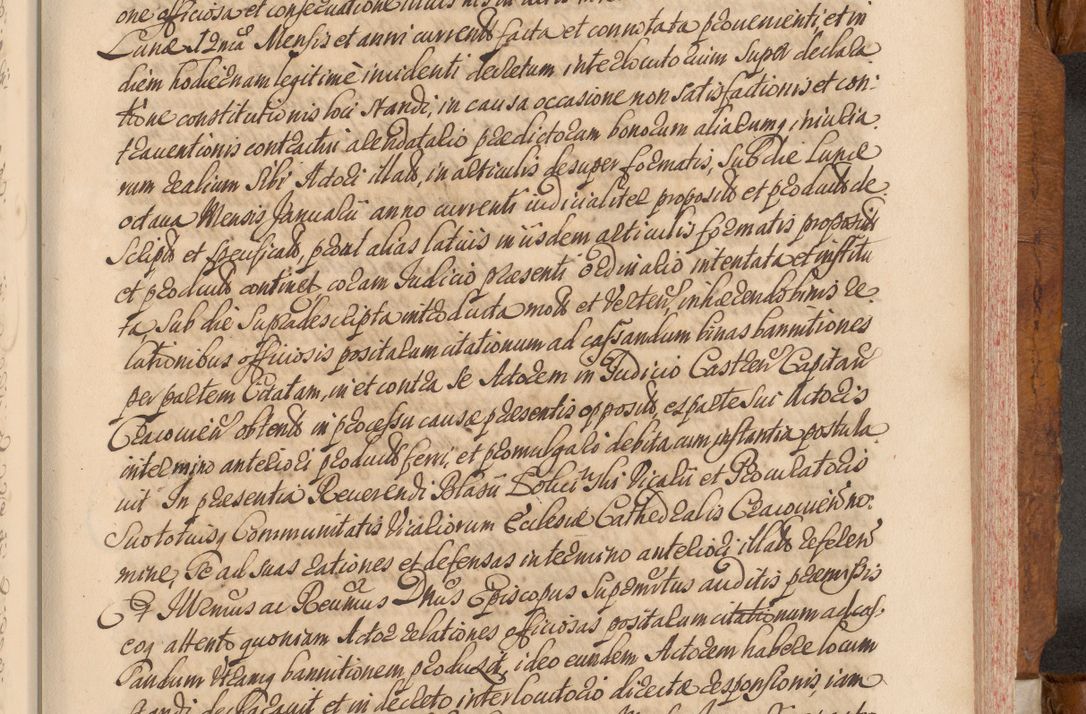 one officiosa et consecuatione
Lunæ 12mâ Mensis et anni currentis facta et connotata prouenienti, et in
diem hodiernam legitimè inuidenti decretum interlocutorium super declara-
tione constitutionis loci standi, in causa occasione non satisfactionis et con-
trauentionis contractui arendatorio prædictorum bonorum aliarumq iniuria-
rum realium sibi Actori illatis, in articulis desuper formatis, sub die Lunæ
octaua Mensis Januarii anno currenti iudicialiter propositis et productis de-
scriptis et specificatis, prout alias latius in iisdem articulis formatis propositis
et productis continet coram Judicio præsenti ordinario intentata et institu-
ta sub die supradescripta introducta mota et Verten, inhærendo binis re-
lationibus officiosis positarum citationum ad cassandum binas bannitiones
per partem Citatam, in et contra se Actorem in Judicio Castren Capitan
Cracouien obtentis in processu causæ præsentis oppositis, ex parte sui Actoris
in termino anteriori productis ferri, et promulgari debita cum instantia postula-
uit In præsentia Reuerendi Blasii sui Vicarii et Procuratoris
suo totiusq Communitatis Vicariorum Ecclesiæ Cathedralis Cracouien no-
mine, se ad suas rationes et defensas in termino anteriori illatis referen
Et Illrmus ac Reuumus Dnus Episcopus Supramtus auditis præmissis
eoq attento quoniam Actor relationes officiosas positarum citationum ad cas-
sandum utramq bannitionem produxit, ideo eundem Actorem habere locum
standi declarauit et in decreto interlocutorio directæ responsionis, iam